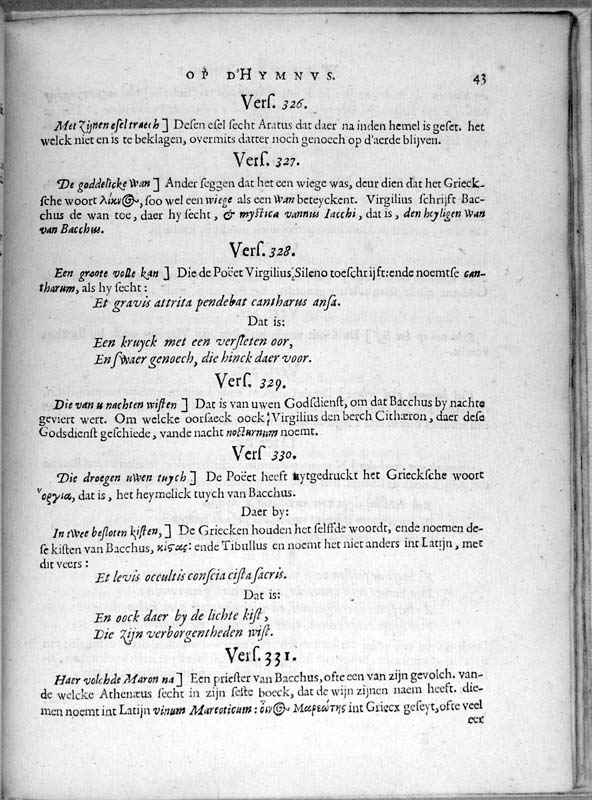 OP D'HYMNVS. 43
Vers. 326.
Met zijnen esel traech ] Desen esel secht Aratus dat daer na inden hemel is geset. het
welck niet en is te beklagen, overmits datter noch genoech op d'aerde blijven.
Vers. 327.
De goddelicke Wan ] Ander seggen dat het een wiege was, deur dien dat het Grieck-
sche woort λίκν@, soo wel een wiege als een Wan beteyckent. Virgilius schrijft Bac-
chus de wan toe, daer hy secht, & mystica vannus Iacchi, dat is, den heyligen Wan
van Bacchus.
Vers. 328.
Een groote volle kan ] Die de Poëet Virgilius Sileno toeschrijft: ende noemtse can-
tharum, als hy secht:
Et gravis attrita pendebat cantharus ansa.
Dat is:
Een kruyck met een versleten oor,
En swaer genoech, die hinck daer voor.
Vers. 329.
Die van u nachten wisten ] Dat is van uwen Godsdienst, om dat Bacchus by nachte
geviert wert. Om welcke oorsaeck oock Virgilius den berch Cithæron, daer dese
Godsdienst geschiede, vande nacht nocturnum noemt.
Vers 330.
Die droegen uwen tuych ] De Poëet heeft uytgedruckt het Griecksche woort
ὄργια, dat is, het heymelick tuych van Bacchus.
Daer by:
In twee besloten kisten, ] De Griecken houden het selffde woordt, ende noemen de-
se kisten van Bacchus, κίϛας: ende Tibullus en noemt het niet anders int Latijn, met
dit veers:
Et levis occultis conscia cista sacris.
Dat is:
En oock daer by de lichte kist,
Die zijn verborgentheden wist.
Vers. 331.
Haer volchde Maron na ] Een priester van Bacchus, ofte een van zijn gevolch. van-
de welcke Athenæus secht in zijn seste boeck, dat de wijn zijnen naem heeft. die-
men noemt int Latijn vinum Mareoticum: οἶν@ Μαρεώτης int Griecx geseyt, ofte veel
eer